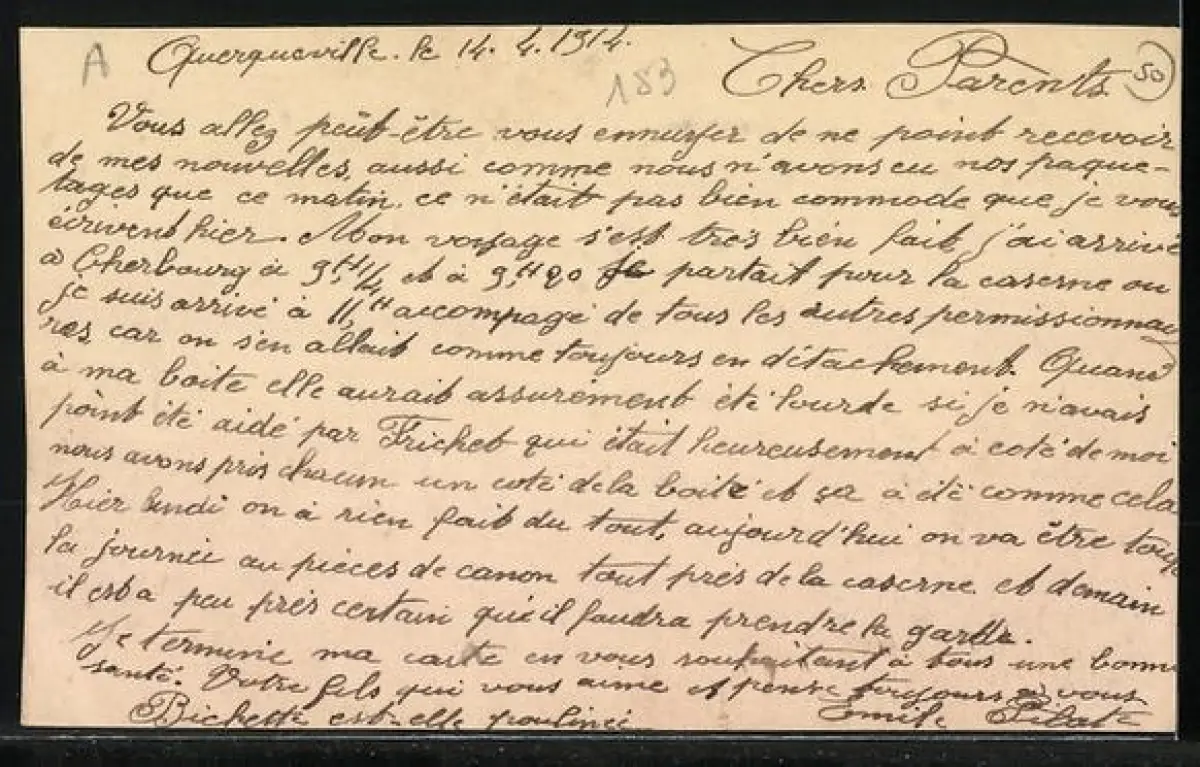 A
Querqueville. le 14. 4. 1914.
183
Chers Parents
50
Vous allez peût-être vous ennuyer de ne point recevoir
de mes nouvelles, aussi comme nous n'avons eu nos paque-
tages que ce matin ce n'était pas bien commode que je vous
écrivent hier. Mon voyage s'est très bien fait, j'ai arrivé
à Cherbourg à 9H1/4 et à 9H20 partait pour la caserne ou
je suis arrivé à 11H accompagé de tous les autres permissionnai
res car on s'en allait comme toujours en détachement. Quand
à ma boite elle aurait assurément été lourde si je n'avais
point été aidé par Frichet qui était heureusement à coté de moi
nous avons pris chacun un coté de la boite et ça a été comme cela
Hier lundi on à rien fait du tout, aujourd'hui on va être toute
la journée au pièces de canon tout près de la caserne et demain
il est a peu près certain qu'il faudra prendre la garde.
Je termine ma carte en vous souhaitant à tous une bonne
santé. Votre fils qui vous aime et pense toujours à vous
Bichette est-elle poulinée
Emile